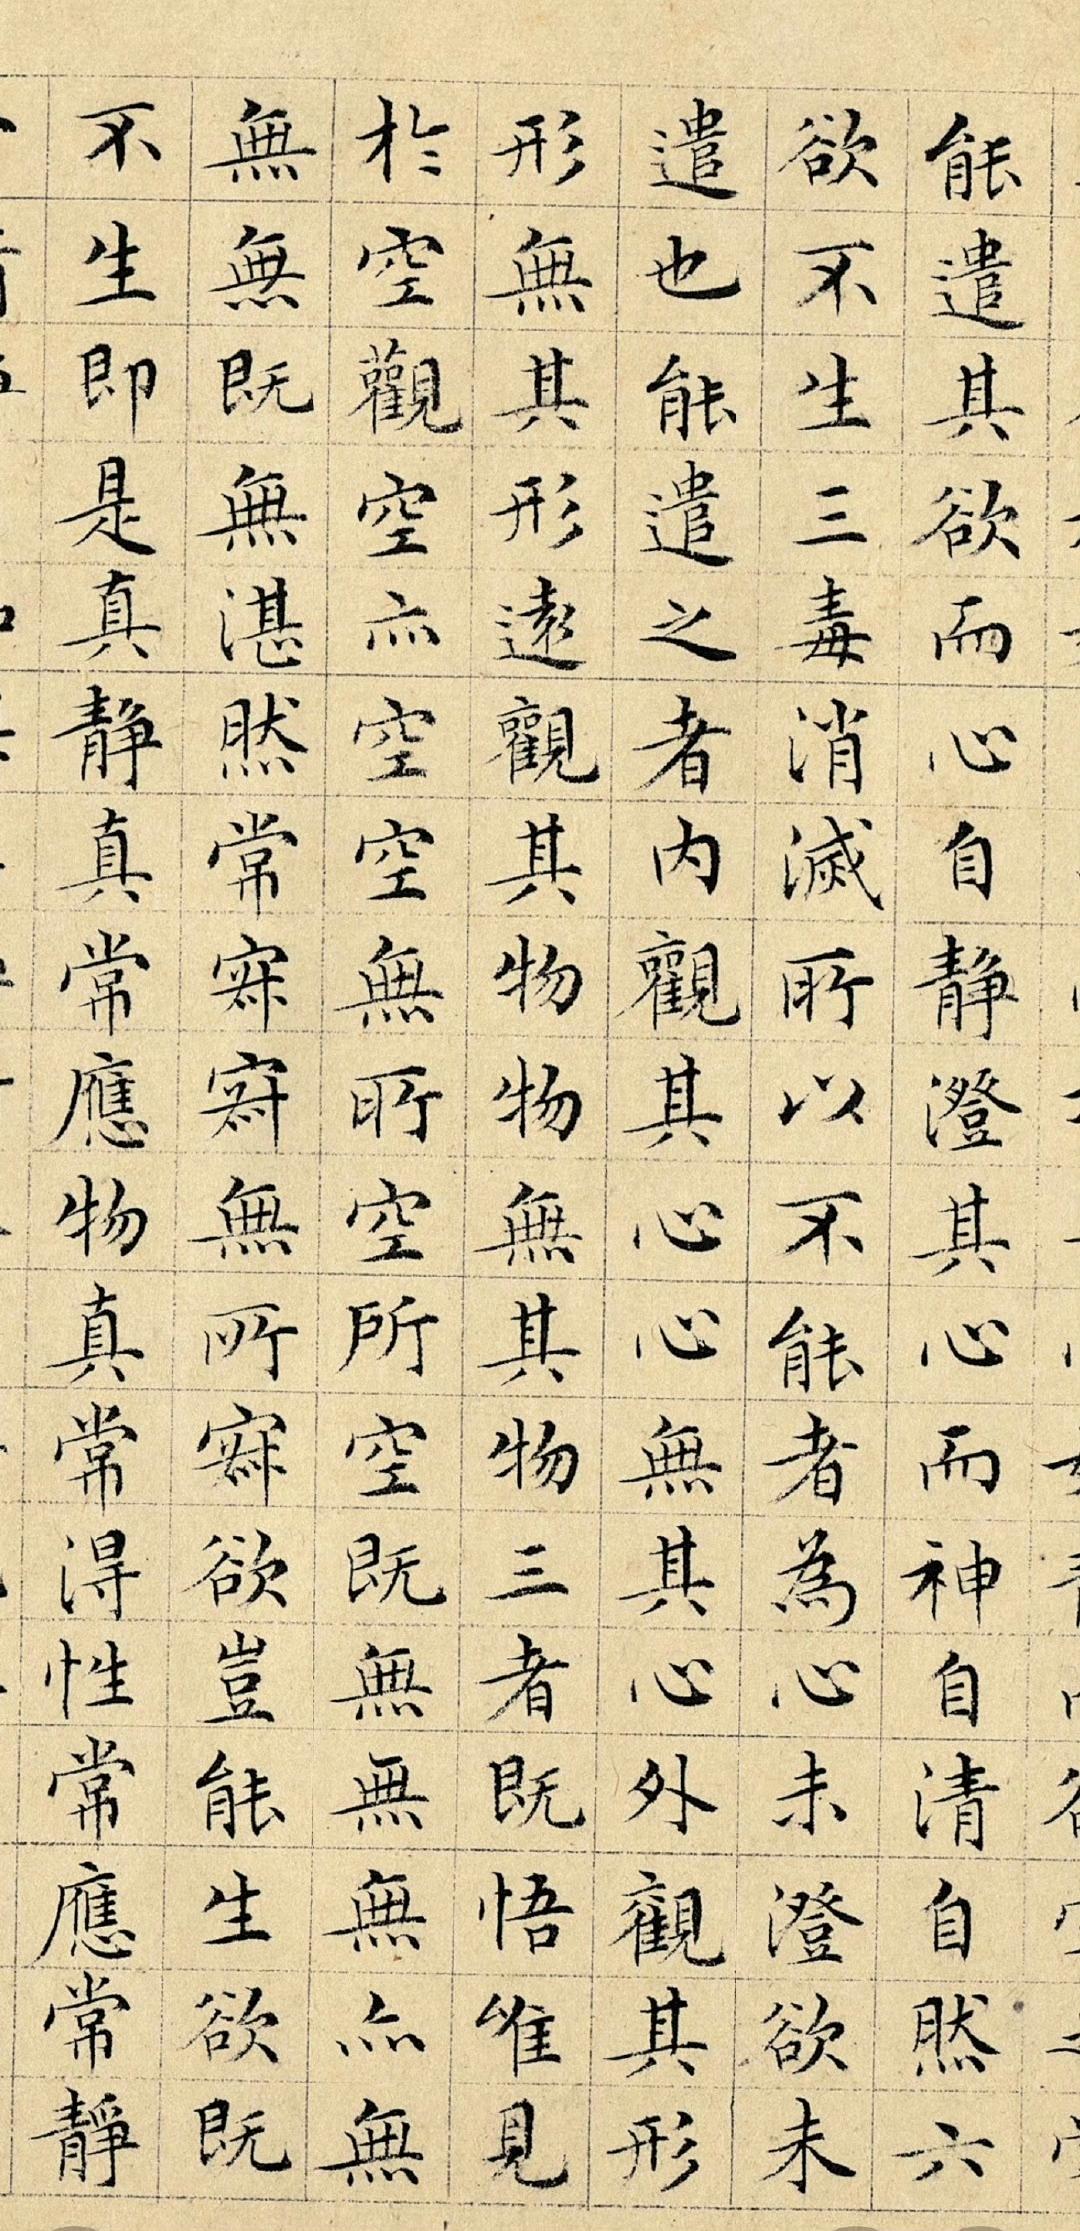 能遣其欲而心自靜澄其心而神自清自然六
欲不生三毒消滅所以不能者為心未澄欲未
遣也能遣之者內觀其心心無其心外觀其形
形無其形遠觀其物物無其物三者既悟唯見
於空觀空亦空空無所空所空既無無無亦無
無無既無湛然常寂寂無所寂欲豈能生欲既
不生即是真靜真常應物真常得性常應常靜